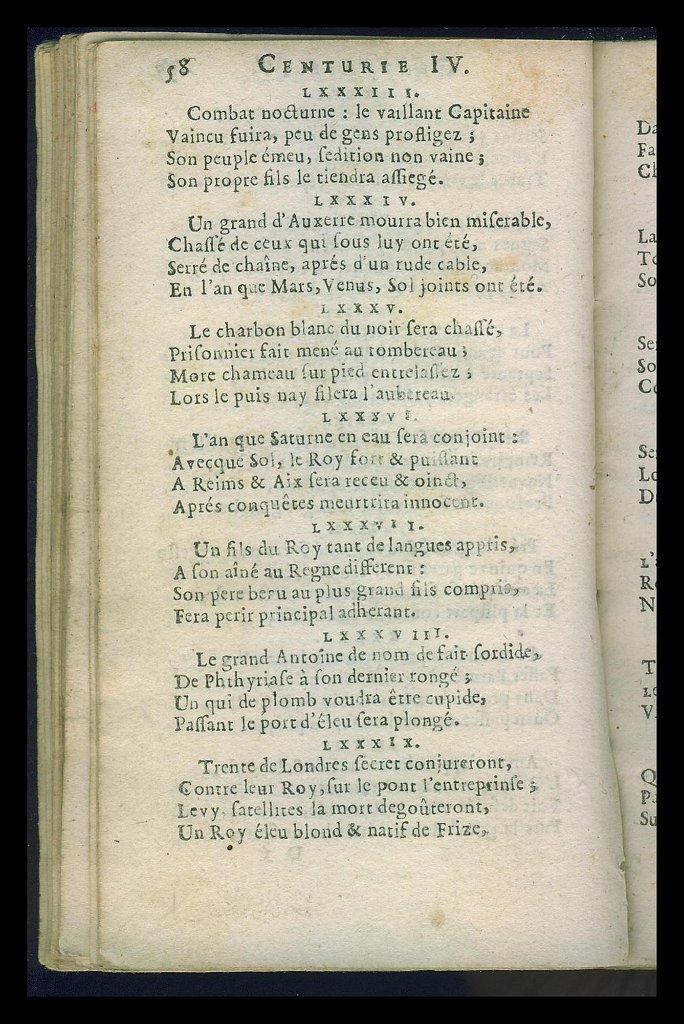 58 CENTURIE IV.
LXXXIII.
Combat nocturne : le vaillant Capitaine
Vaincu fuira, peu de gens profligez ;
Son peuple émeu, ſedition non vaine ;
Son propre fils le tiendra aſſiegé.
LXXXIV.
Un grand d'Auxerre mourra bien miſerable,
Chaſſé de ceux qui ſous luy ont été,
Serré de chaîne, aprés d'un rude cable,
En l'an que Mars, Venus, Sol joints ont été.
LXXXV.
Le charbon blanc du noir ſera chaſſé,
Priſonnier fait mené au tombereau ;
More chameau ſur pied entrelaſſez ;
Lors le puis nay filera l'aubereau.
LXXXVI.
L'an que Saturne en eau ſera conjoint :
Avecque Sol, le Roy fort & puiſſant
A Reims & Aix ſera receu & oinct,
Aprés conquêtes meurtrira innocent.
LXXXVII.
Un fils du Roy tant de langues appris,
A ſon aîné au Regne different :
Son pere beau au plus grand fils compris,
Fera perir principal adherant.
LXXXVIII.
Le grand Antoine de nom de fait ſordide,
De Phthyriaſe à ſon dernier rongé ;
Un qui de plomb voudra être cupide,
Paſſant le port d'éleu ſera plongé.
LXXXIX.
Trente de Londres ſecret conjureront,
Contre leur Roy, ſur le pont l'entreprinſe ;
Levy, ſatellites la mort degoûteront,
Un Roy éleu blond & natif de Frize,
Da
Fa
Cl
La
To
So
Se
So
Co
Se
Lo
D
L'
R
N
T
Le
V
Q
Pa
Su